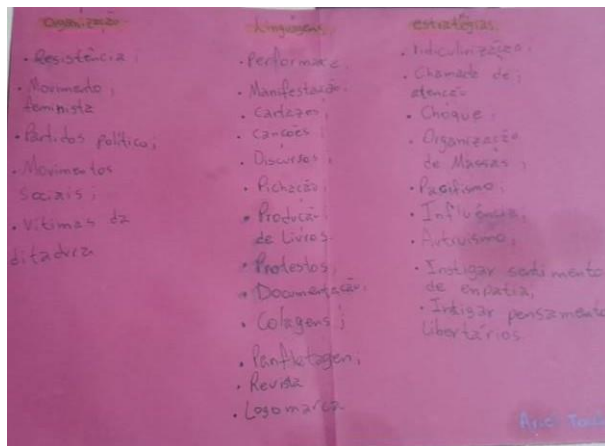 organização
• Resistência;
• Movimento
feminista
• Partidos político;
• Movimentos
sociais;
• Vítimas da
ditadura
linguagens
• Performace;
• Manifestação;
• Cartazes;
• Canções;
• Discursos;
• Pichação;
• Produção
de Livros.
• Protestos;
• Documentação;
• Colagens;
• Panfletagem;
• Revista
• Logomarca
estratégias
• ridicularização;
• Chamada de;
atenção
• Choque;
• Organização
de Massas;
• Pacifismo;
• Influência;
• Ativismo;
• Instigar sentimento
de enpatia;
• Instigar pensamento
Libertários.